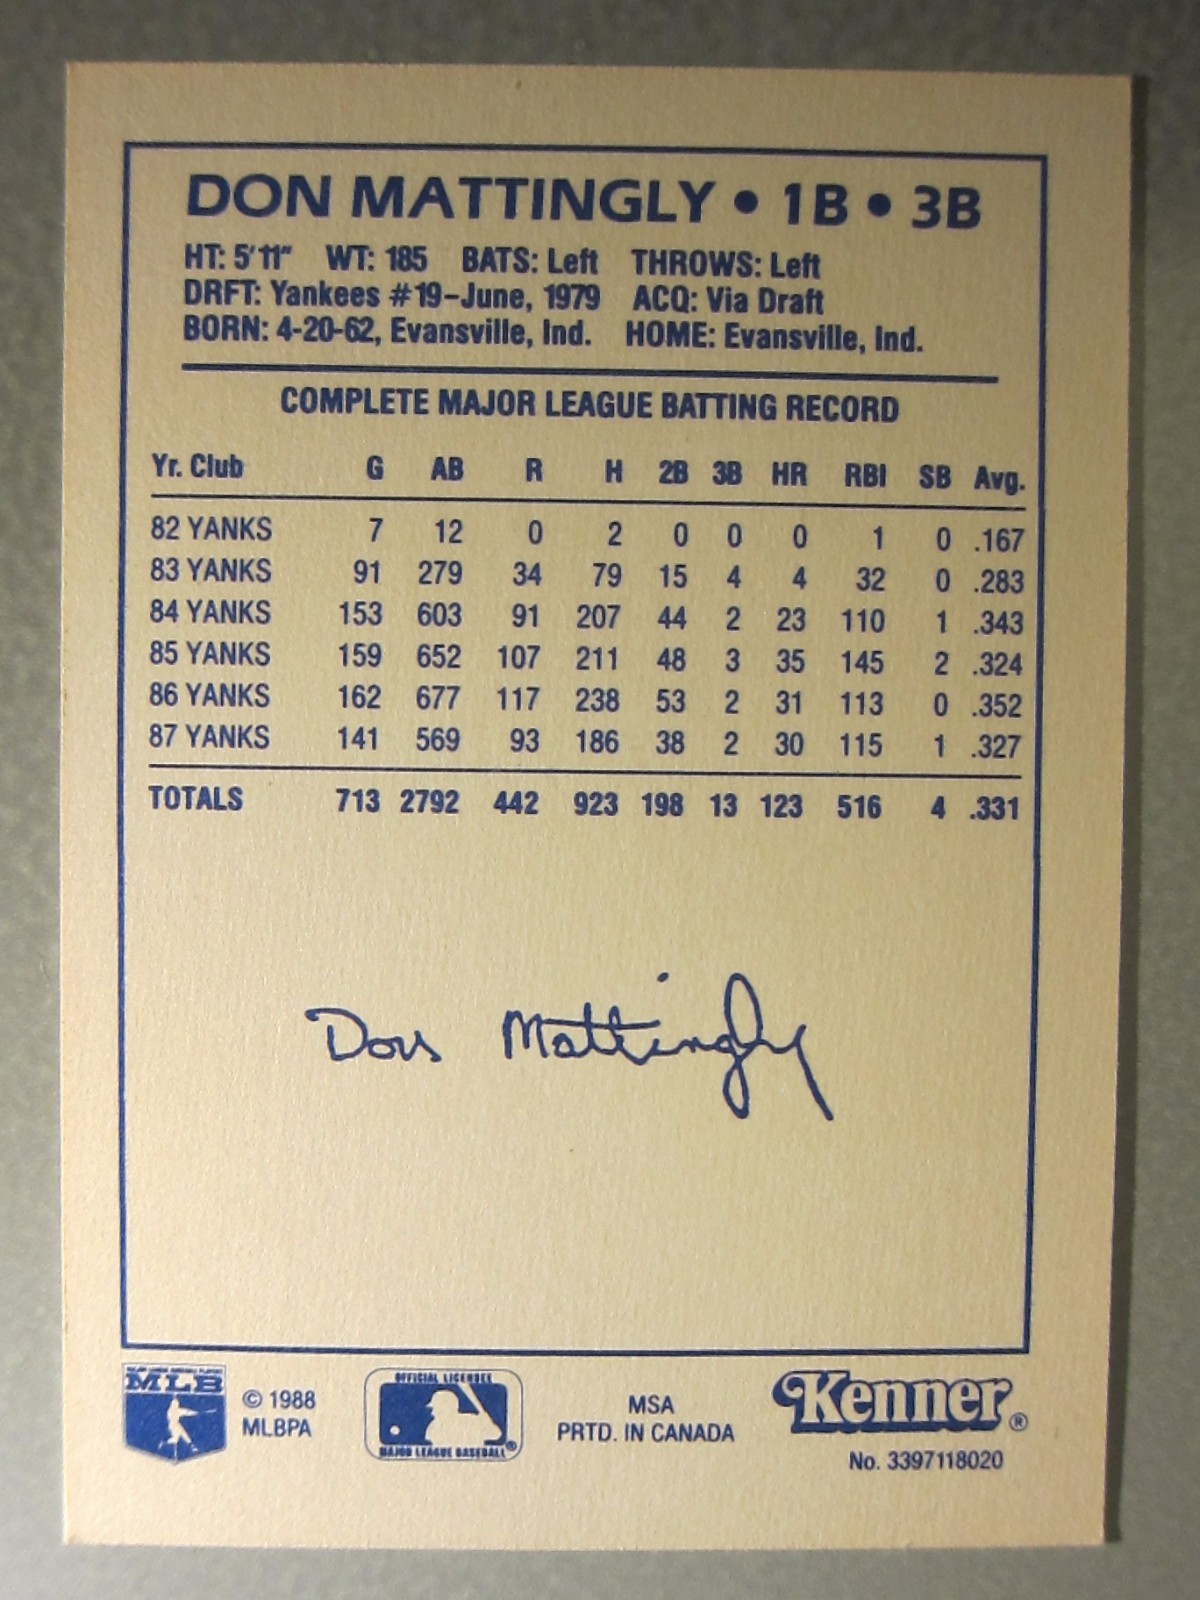 DON MATTINGLY • 1B • 3B
HT: 5'11" WT: 185 BATS: Left THROWS: Left
DRFT: Yankees #19-June, 1979 ACQ: Via Draft
BORN: 4-20-62, Evansville, Ind. HOME: Evansville, Ind.
COMPLETE MAJOR LEAGUE BATTING RECORD
Yr. Club G AB R H 2B 3B HR RBI SB Avg.
82 YANKS 7 12 0 2 0 0 0 1 0 .167
83 YANKS 91 279 34 79 15 4 4 32 0 .283
84 YANKS 153 603 91 207 44 2 23 110 1 .343
85 YANKS 159 652 107 211 48 3 35 145 2 .324
86 YANKS 162 677 117 238 53 2 31 113 0 .352
87 YANKS 141 569 93 186 38 2 30 115 1 .327
TOTALS 713 2792 442 923 198 13 123 516 4 .331
Don Mattingly
MLB
© 1988
MLBPA
OFFICIAL LICENSEE
MAJOR LEAGUE BASEBALL®
MSA
PRTD. IN CANADA
Kenner®
No. 3397118020